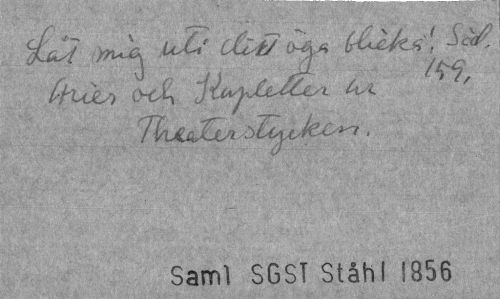 Låt mig uti ditt öga blicka! Sid.
159,
Arier och Kupletter ur
Theaterstycken.
Saml SGST Ståhl 1856